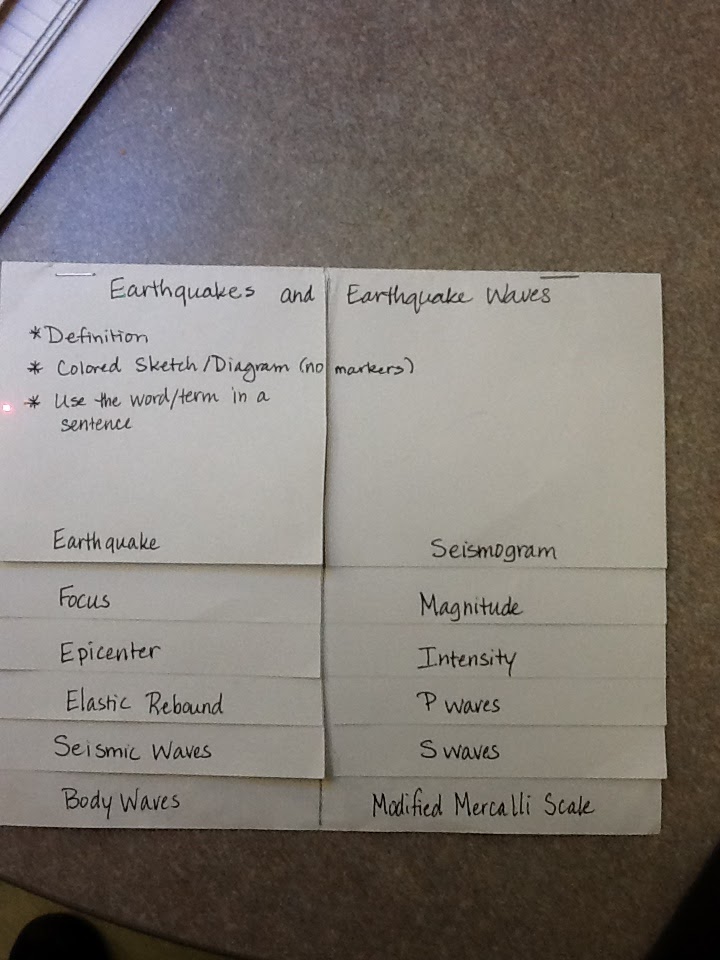 Earthquakes and Earthquake Waves
* Definition
* Colored Sketch/Diagram (no markers)
* Use the word/term in a
sentence
Earthquake
Seismogram
Focus
Magnitude
Epicenter
Intensity
Elastic Rebound
P waves
Seismic Waves
S waves
Body Waves
Modified Mercalli Scale